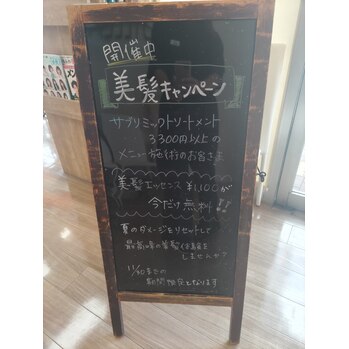 開催中
美髪キャンペーン
サブリミックトリートメント
3300円以上の
メニュー施術のお客さま
美髪エッセンス ¥1,100が
今だけ無料!!
夏のダメージをリセットして
最高峰の美髪体験を
しませんか?
11/30までの
期間限定となります